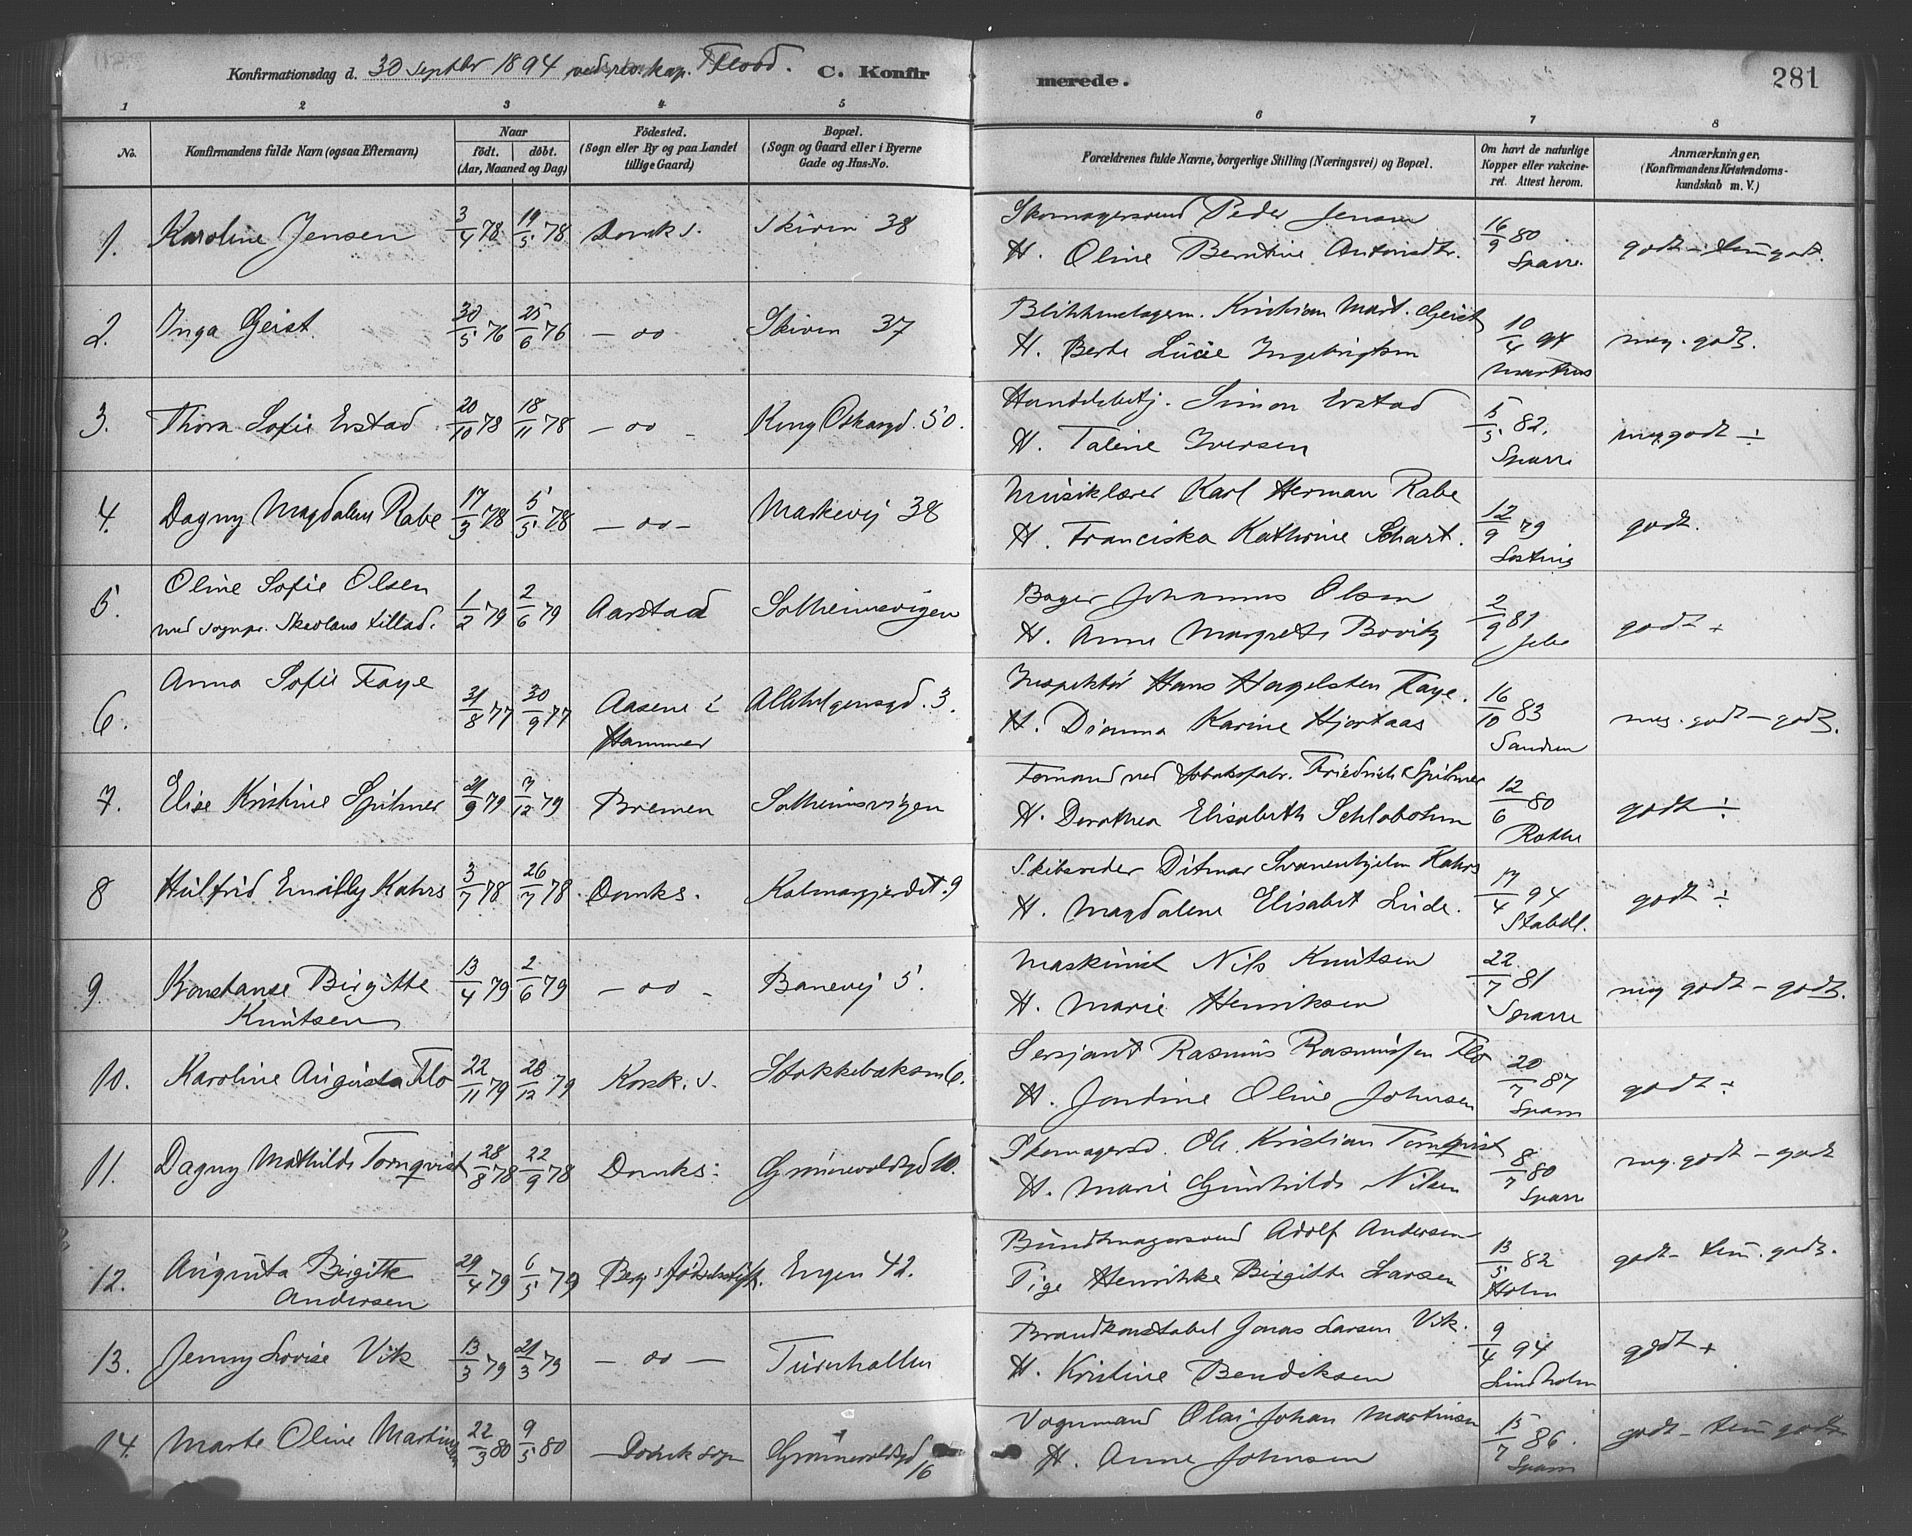 Konfirmationsdag d. 30 Septbr 1894 ved res. kap. Flood. C. Konfirmerede. 281
1 2 3 4 5 6 7 8
No.
Konfirmandens fulde Navn (ogsaa Efternavn)
Naar
födt. döbt.
(Aar, Maaned og Dag)
Födested.
(Sogn eller By og paa Landet tillige Gaard)
Bopæl.
(Sogn og Gaard eller i Byerne Gade og Hus-No.
Forældrenes fulde Navne, borgerlige Stilling (Næringsvei) og Bopæl.
Om havt de naturlige Kopper eller vakcineret. Attest herom.
Anmærkninger.
(Konfirmandens Kristendomskundskab m. V.)
1. Karoline Jensen 3/4 78 19/5 78 Domks. Skiven 38 Skomagersvend Peder Jensen 16/9 80
H. Oline Berntine Antonsdtr. Sparre godt - tem godt.
2. Inga Geist 30/5 76 25/6 76 - oo Skiven 37 Blikkenslagerm. Kristian Mart. Geist 10/4 94
H. Berte Lucie Ingebrigtsen Martens meg. godt.
3. Thora Sofie Erstad 20/10 78 18/11 78 - oo - Kong Oskarsgd. 50. Handelsbetj. Simon Erstad 5/5 82.
H. Taline Iversen Sparre meg godt ÷
4. Dagny Magdalene Rabe 17/3 78 5/5 78 - oo - Markevej 38 Musiklærer Karl Herman Rabe 12/9 79
H. Franciska Kathrine Schart. godt.
5. Oline Sofie Olsen
med sognepr. Skavlans tillad. 1/2 79 2/6 79 Aarstad Solheimsvigen Bager Johannes Olsen 2/9 81
H. Anne Margrete Bovitz godt +
6. Anna Sofie Faye 31/8 77 30/9 77 Aasene i
Hammer Allehelgensgd. 3. Inspektör Hans Hagelsten Faye. 16/10 83
H. Dianna Karine Hjortaas meg. godt - godt.
7. Elise Kristine Spilmer 21/9 79 7/12 79 Bremen Solheimsvigen Formand ved tobaksfabr. Friedrich Spilmer 12/6 80
H. Dorothea Elisabeth Schlobohm Rothe godt ÷
8 Hulfrid Emilly Kahrs 3/7 78 26/7 78. Domks. Kalmargjerdet. 9 Skibsreder Ditmar Svanenhjelm Kahrs 17/4 94
H. Magdalene Elisabet Lude. Stabell. godt ÷
9. Konstanse Birgitte
Knutsen 13/4 79 2/6 79 - oo - Banevej 5. Maskinist Nils Knutsen 22/7 81
H. Marie Henriksen Sparre meg godt - godt.
10. Karoline Augusta Flo 22/11 79 28/12 79 Korsk. s. Stokkebaksm 6. Sersjant Rasmus Rasmussen Flo 20/7 87
H. Jondine Oline Johnsen Sparre godt ÷
11. Dagny Mathilde Tornqvist 28/8 78 22/9 78 Domks: Grönnevoldsgd 10. Skomagersd. Ole Kristian Tornqvist 8/7 80
H. Marie Gunhilde Nilsen Sparre meg. godt - godt
12. Augusta Birgitte
Andersen 29/4 79 6/5 79 Berg. födselsstift. Engen 42. Bundtmagersvend Adolf Andersen 13/5 82
Pige Henrikke Birgitte Larsen Holm godt - tem. godt.
13. Jenny Lovise Vik 13/3 79 21/3 79 - oo - Turnhallen Brandkonstabel Jonas Larsen Vik. 9/4 94
H. Kristine Bendiksen Lindholm godt +
14. Marte Oline Martinsen 22/3 80 9/5 80 Domksogn Grönnevoldsgd
16 Vognmand Olai Johan Martinsen 15/7 86.
H. Anne Johnsen Sparre godt - tem godt